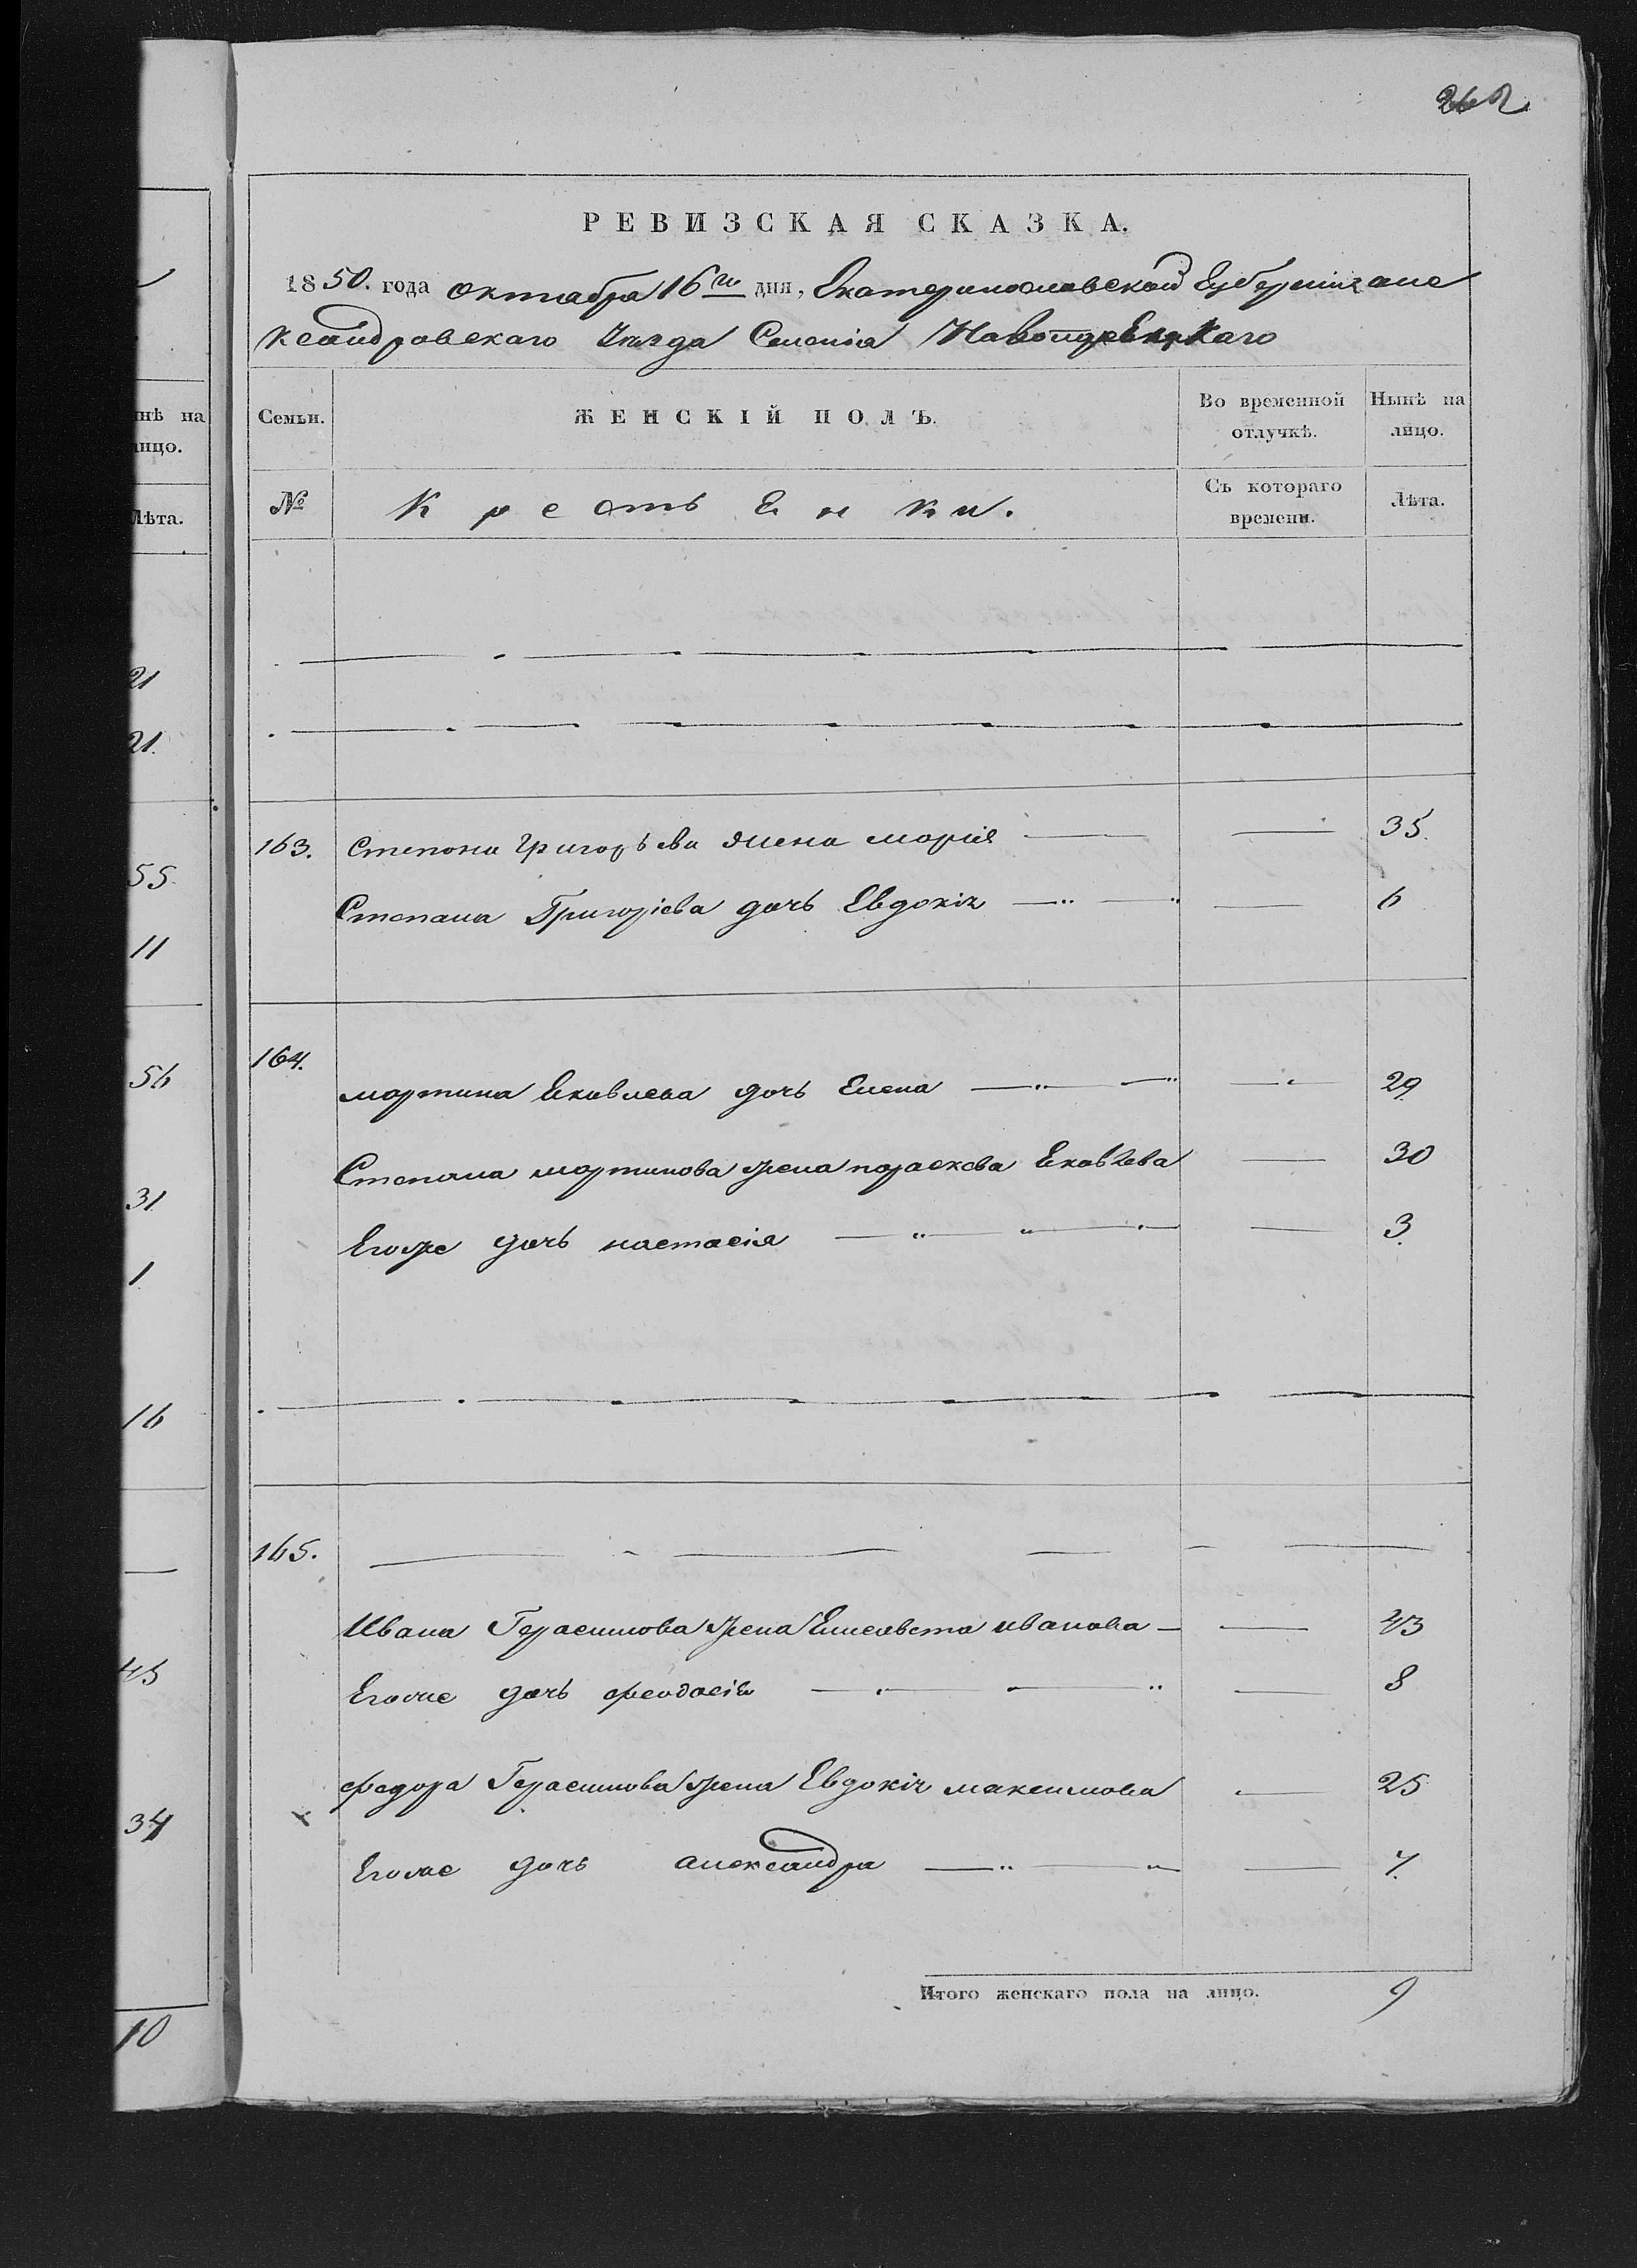 262
РЕВИЗСКАЯ СКАЗКА.
1850. года октабра 16го дня, Екатеринославской Губерніи але
ксандровскаго Уезда Селенія
Семьи. ЖЕНСКІЙ ПОЛЪ. Во временной отлучкѣ. Нынѣ на лицо.
№ Крестьенки. Съ котораго времени. Лѣта.
163. Степона Григорьева жена морія — — 35.
Степана Григоріева дочь Евдокія — — 6
164.
мортина Ековлева дочь Елена — — 29
Степана мортинова жена порасковаЕковлева — 30
Егоже дочь настасія — — 3.
165. — — —
Ивана Герасимова жена Елисавета иванова — — 43
Егоже дочь феодосія — — 8
федора Герасимова жена Евдокія максимова — 25
Егоже дочь александра — — 7.
Итого женскаго пола на лицо. 9
нѣ на
лицо.
Лѣта.
21
21.
55.
11
56
31
1
16
—
45
34
10